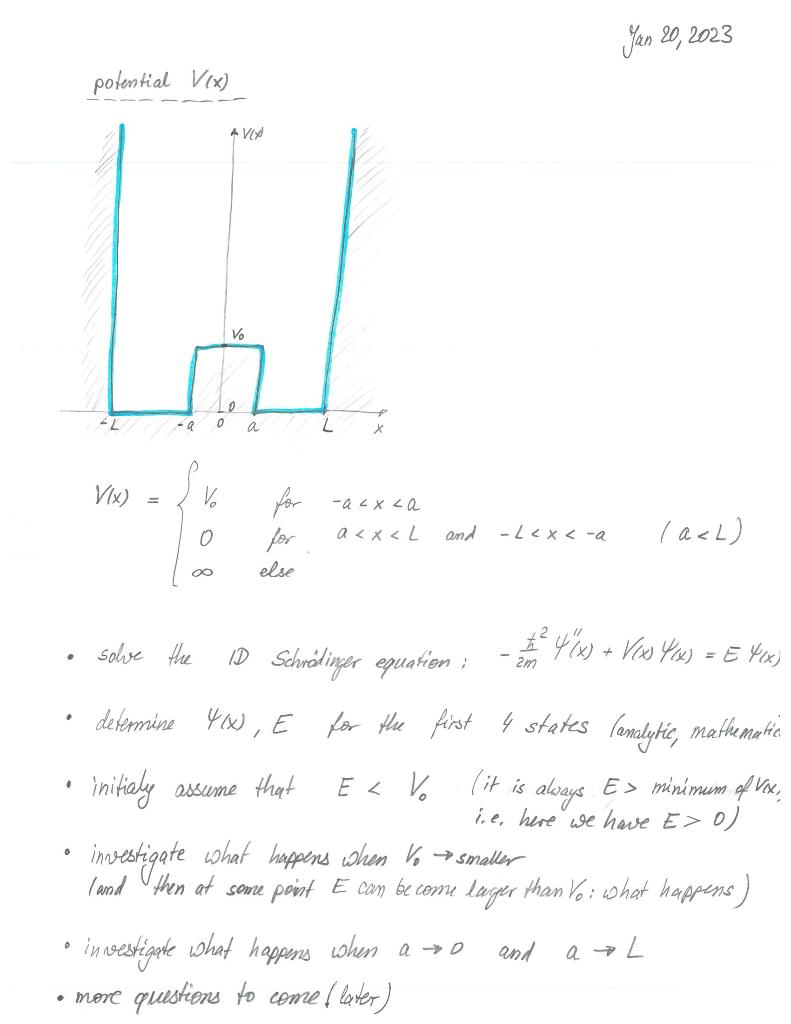 Jan 20, 2023
potential V(x)
V(x)
V₀
0
-L -a 0 a L x
V(x) = { V₀ for -a < x < a
0 for a < x < L and -L < x < -a (a < L)
∞ else
• solve the 1D Schrödinger equation : -ħ²/2m Ψ''(x) + V(x) Ψ(x) = E Ψ(x)
• determine Ψ(x), E for the first 4 states (analytic, mathematic
• initialy assume that E < V₀ (it is always E > minimum of V(x),
i.e. here we have E > 0)
• investigate what happens when V₀ → smaller
(and then at some point E can become larger than V₀ : what happens)
• investigate what happens when a → 0 and a → L
• more questions to come (later)